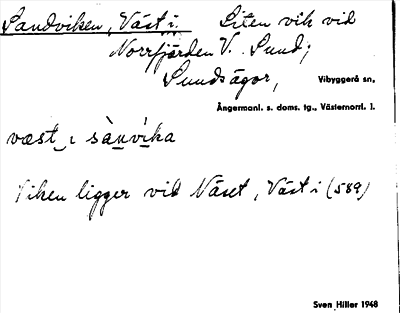 Sandviken, Väst i. Liten vik vid
Norrfjärden V. Sund,
Sundsägor, Vibyggerå sn,
Ångermanl. s. doms. tg., Västernorrl. l.
væst i sànvika
Viken ligger vid Näset, Väst i (589)
Sven Hiller 1948